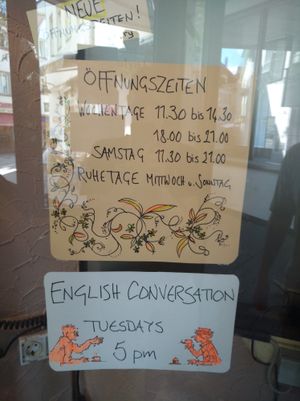 NEUE
ÖFFNUNGSZEITEN!
ÖFFNUNGSZEITEN
WOCHENTAGE 11.30 bis 14.30
18.00 bis 21.00
SAMSTAG 11.30 bis 21.00
RUHETAGE MITTWOCH u. SONNTAG
ENGLISH CONVERSATION
TUESDAYS
5 pm